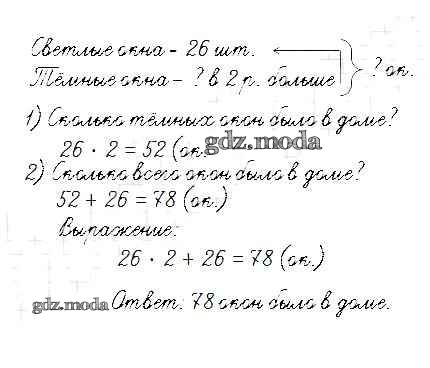 Светлые окна - 26 шт.
Тёмные окна - ? в 2 р. больше
? ок.
1) Сколько тёмных окон было в доме?
26 · 2 = 52 (ок.
gdz.moda
2) Сколько всего окон было в доме?
52 + 26 = 78 (ок.)
Выражение:
26 · 2 + 26 = 78 (ок.)
gdz.moda Ответ: 78 окон было в доме.